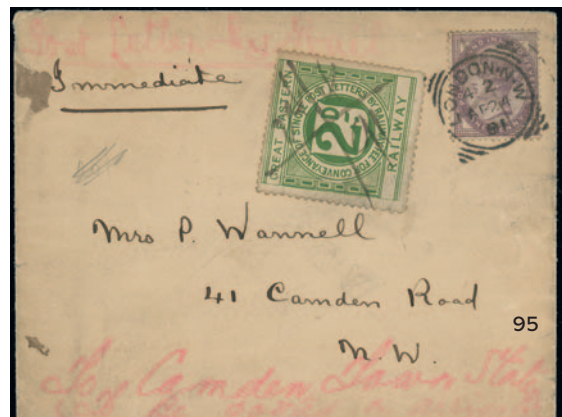 Post Letter
Immediate
GREAT EASTERN
RAILWAY
FEE FOR CONVEYANCE OF SINGLE POST LETTERS BY RAILWAY
2D
LONDON·N.W
Mrs P. Wannell
41 Camden Road
95
N. W.
To Camden Town